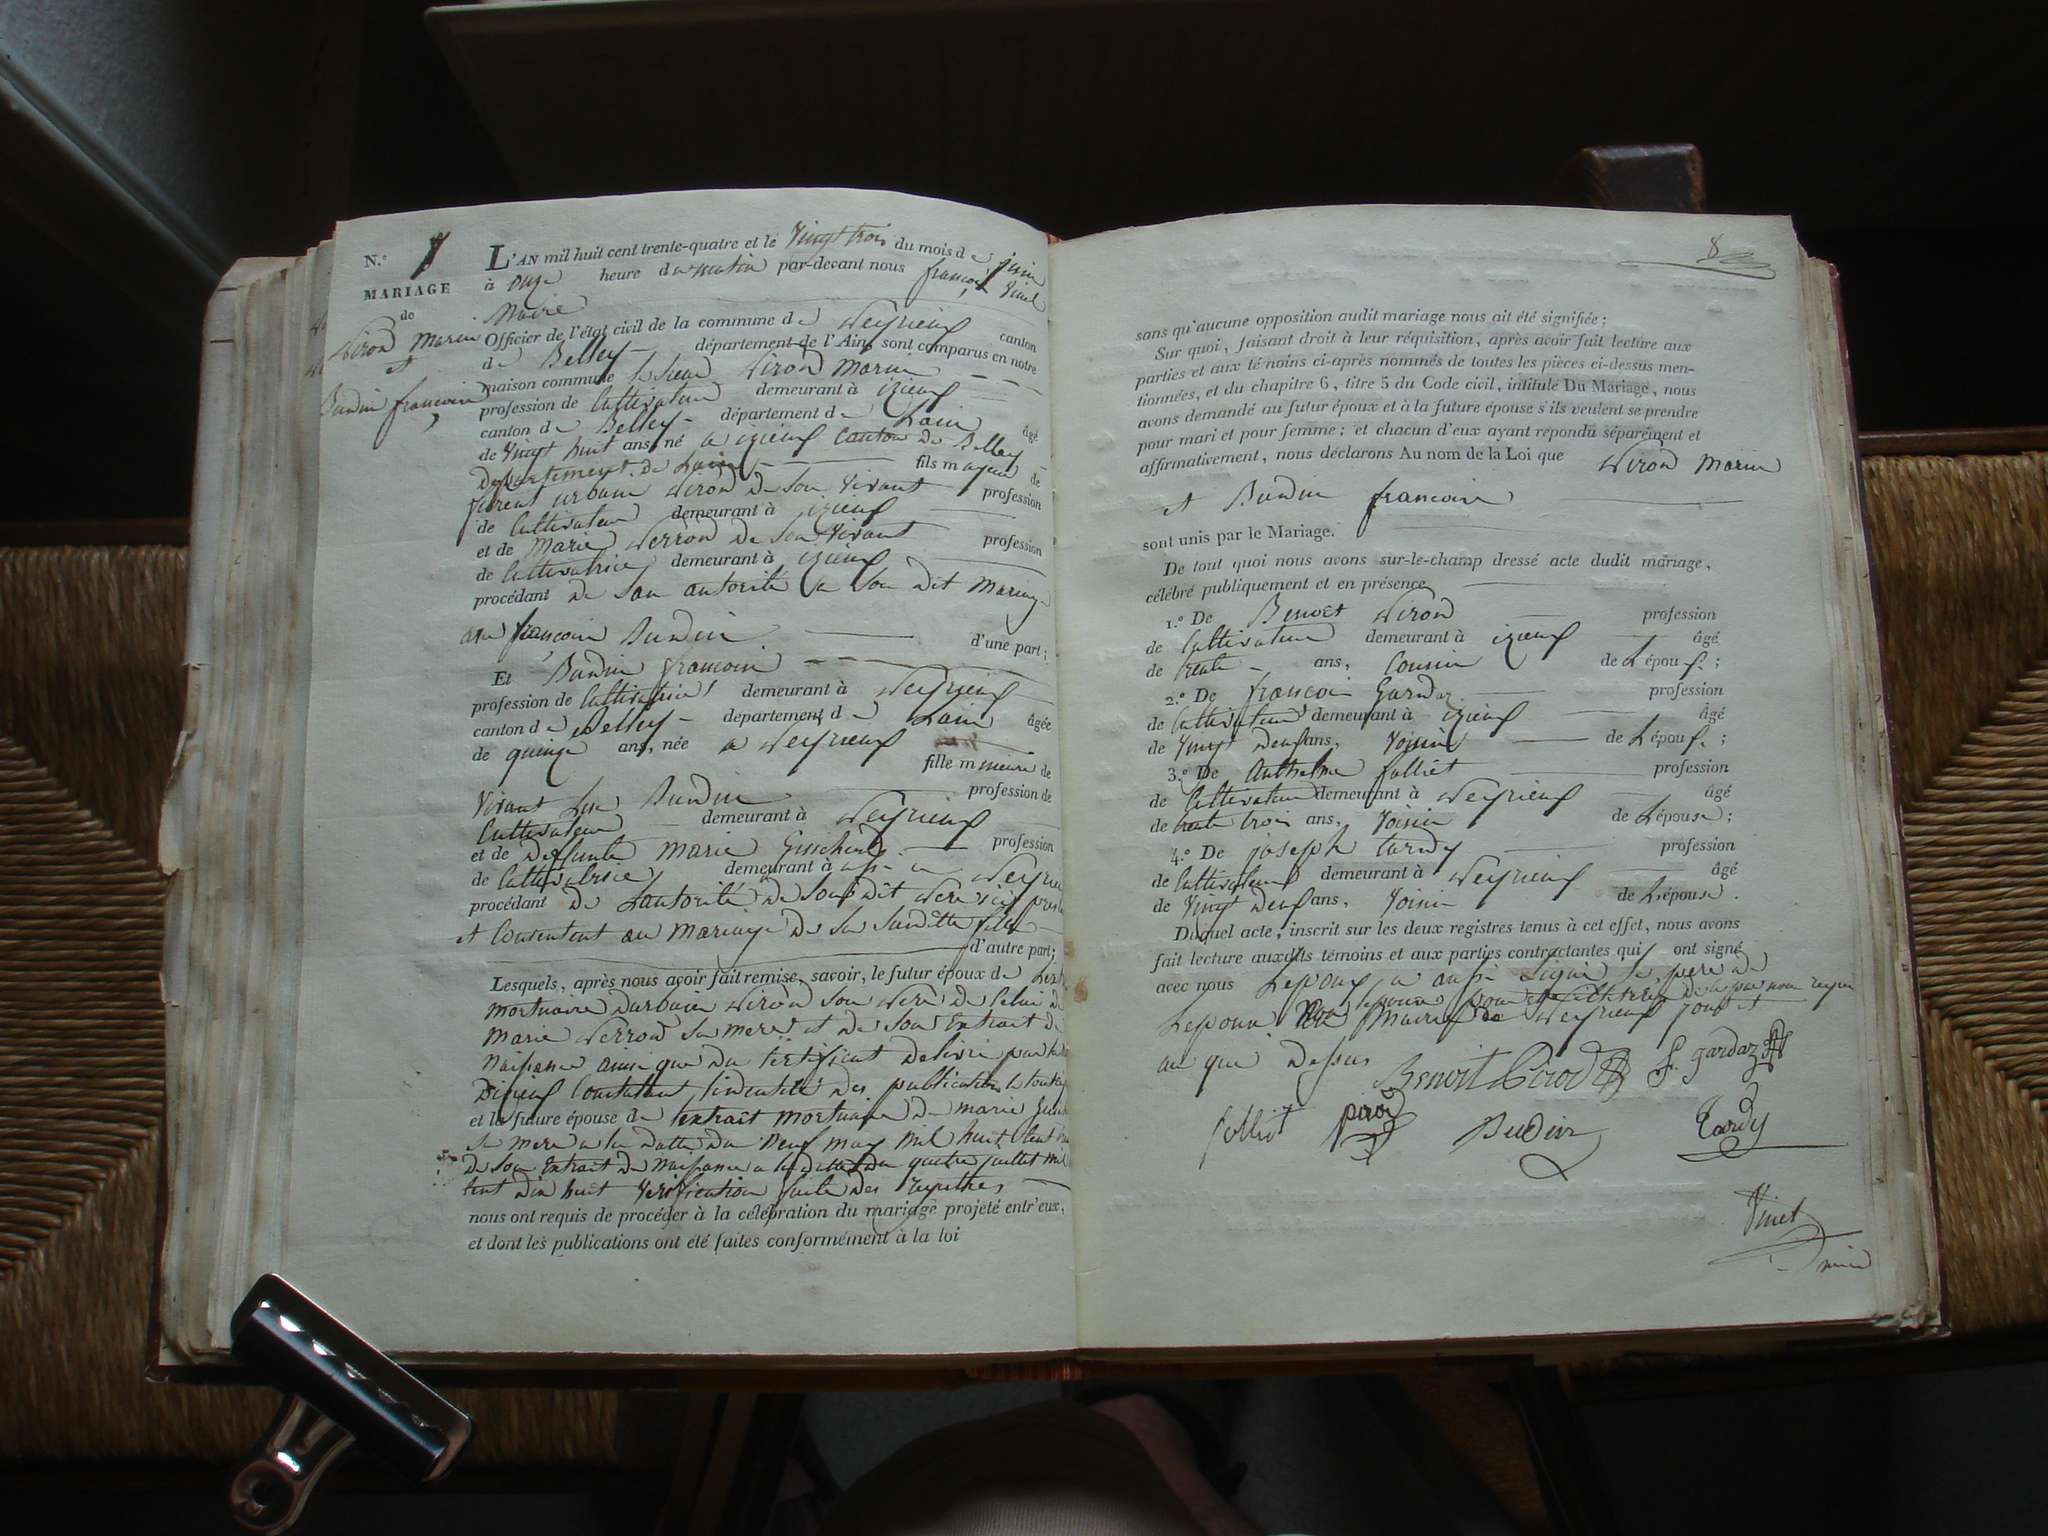 N.º 7
MARIAGE
de
Piron Marin
et
Budin françoise
L'AN mil huit cent trente-quatre et le Vingt trois du mois de juin
à onze heure du matin par-devant nous françois Vinel
Maire
Officier de l'état civil de la commune de Peyrieux canton
de Belley département de l'Ain sont comparus en notre
maison commune le sieur Piron Marin
profession de Cultivateur demeurant à izieux
canton de Belley département de Lain âgé
de Vingt huit ans, né a izieux Canton de Belley
Departement de Lain fils majeur de
urbain Piron de son Vivant profession
de Cultivateur demeurant à izieux
et de Marie Perron de son Vivant profession
de Cultivatrice demeurant à izieux
procédant de son autorité a son dit Mariage
françoise Budin d'une part;
Et Budin françoise
profession de Cultivatrice demeurant à Peyrieux
canton de Belley département de Lain âgée
de quinze ans, née a Peyrieux
fille mineure de
Vivant Budin profession de
Cultivateur demeurant à Peyrieux
et de deffunte Marie Guichard profession
de Cultivatrice demeurant à Peyrieu
procédant de Lautorité de son dit Pere ici
et Consentent au Mariage de sa suditte fille
d'autre part;
Lesquels, après nous avoir fait remise, savoir, le futur époux de
Mortuaire Durbain Piron son Pere de Celui de
Marie Perron sa mere et de son Extrait de
Naissance ainsi que du Certificat delivré par
Dizieux Constatant des publications
et la future épouse de lextrait Mortuaire de marie
sa mere a la datte du Neuf may Mil huit Cent
de son Extrait de Naissance a la datte du quatre juillet Mil
Cent dix huit Verification faite des registres
nous ont requis de procéder à la célébration du mariage projeté entr'eux,
et dont les publications ont été faites conformément à la loi
8
sans qu'aucune opposition audit mariage nous ait été signifiée;
Sur quoi, faisant droit à leur réquisition, après avoir fait lecture aux
parties et aux témoins ci-après nommés de toutes les pièces ci-dessus men-
tionnées, et du chapitre 6, titre 5 du Code civil, intitulé Du Mariage, nous
avons demandé au futur époux et à la future épouse s'ils veulent se prendre
pour mari et pour femme; et chacun d'eux ayant répondu séparément et
affirmativement, nous déclarons Au nom de la Loi que Piron Marin
et Budin françoise
sont unis par le Mariage.
De tout quoi nous avons sur-le-champ dressé acte dudit mariage,
célébré publiquement et en présence
1.º De Benoît Piron profession
de Cultivateur demeurant à izieux âgé
de trente ans, Cousin de Lépoux;
2.º De françois Gardaz profession
de Cultivateur demeurant à izieux âgé
de Vingt deux ans, Voisin de Lépoux;
3.º De Anthelme folliet profession
de Cultivateur demeurant à Peyrieux âgé
de trente trois ans, Voisin de Lépouse;
4.º De joseph tardy profession
de Cultivateur demeurant à Peyrieux âgé
de Vingt deux ans, Voisin de Lépouse.
Duquel acte, inscrit sur les deux registres tenus à cet effet, nous avons
fait lecture auxdits témoins et aux parties contractantes qui ont signé
avec nous Lepoux a aussi Signé le pere de
Lepouse Peyrieux jour et
an que dessus
Benoit Pirod f. gardaz
folliet piron Budin Tardy
Vinel
maire